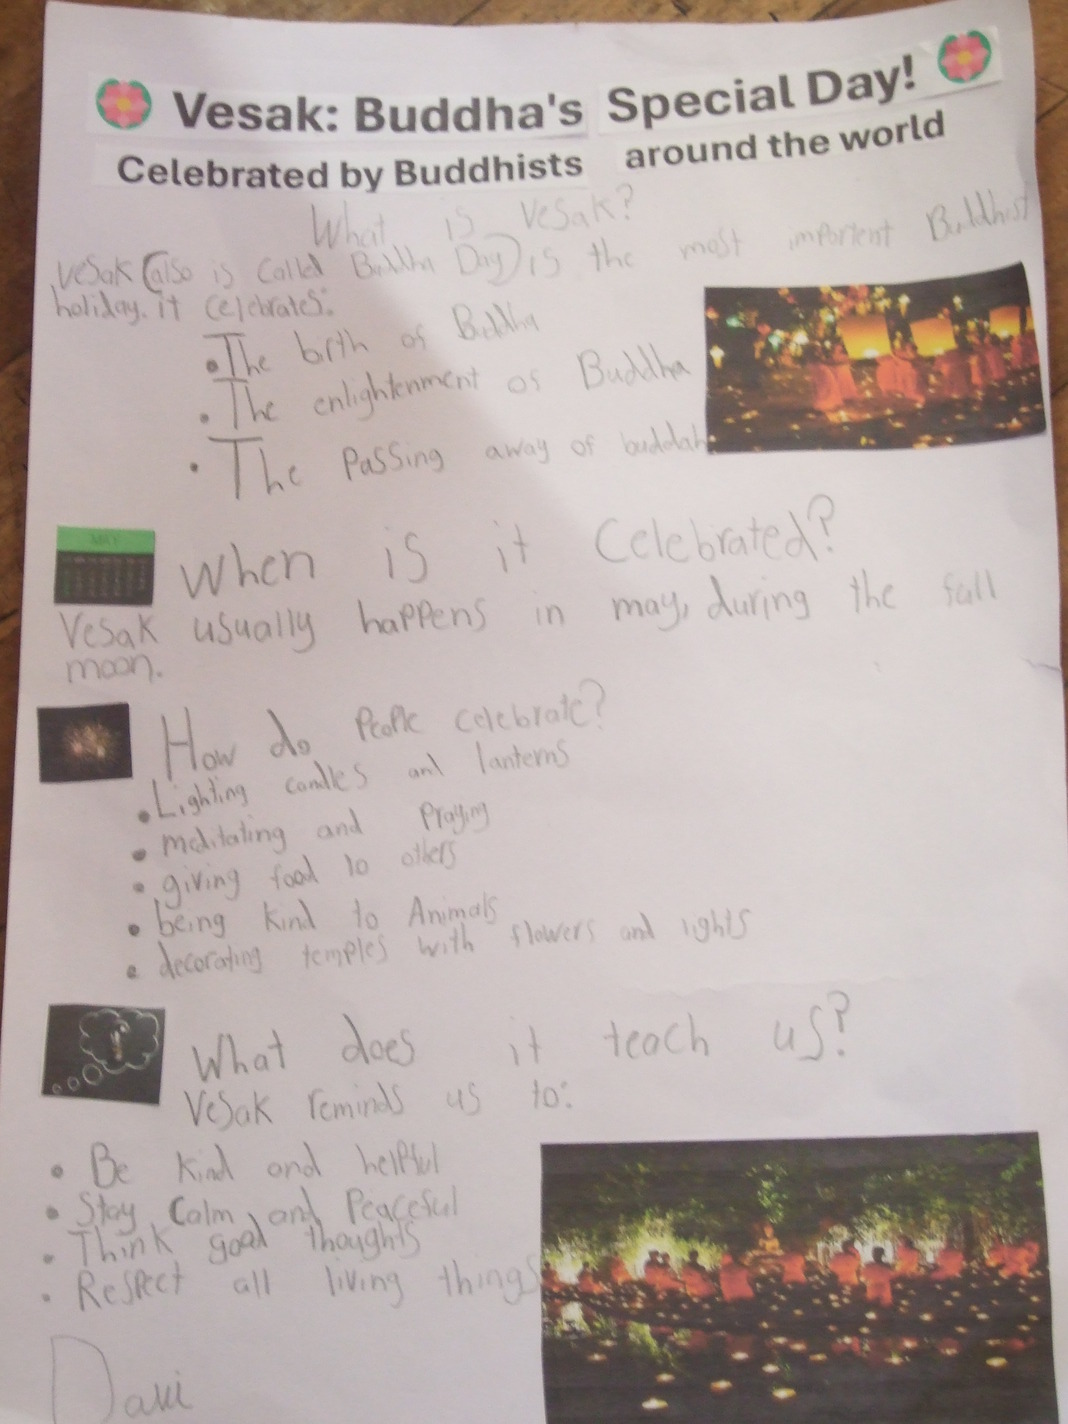 Vesak: Buddha's Special Day!
Celebrated by Buddhists around the world
What is Vesak?
Vesak (also is called Buddha Day) is the most importent Buddhist
holiday. it celebrates:
• The birth of Buddha
• The enlightenment of Buddha
• The Passing away of buddah
MAY
When is it Celebrated?
Vesak usually happens in may, during the full
moon.
How do People celebrate?
• Lighting candles and lanterns
• meditating and Praying
• giving food to others
• being kind to Animals
• decorating temples with flowers and lights
What does it teach us?
Vesak reminds us to:
• Be kind and helpful
• Stay Calm and Peaceful
• Think good thoughts
• Respect all living things